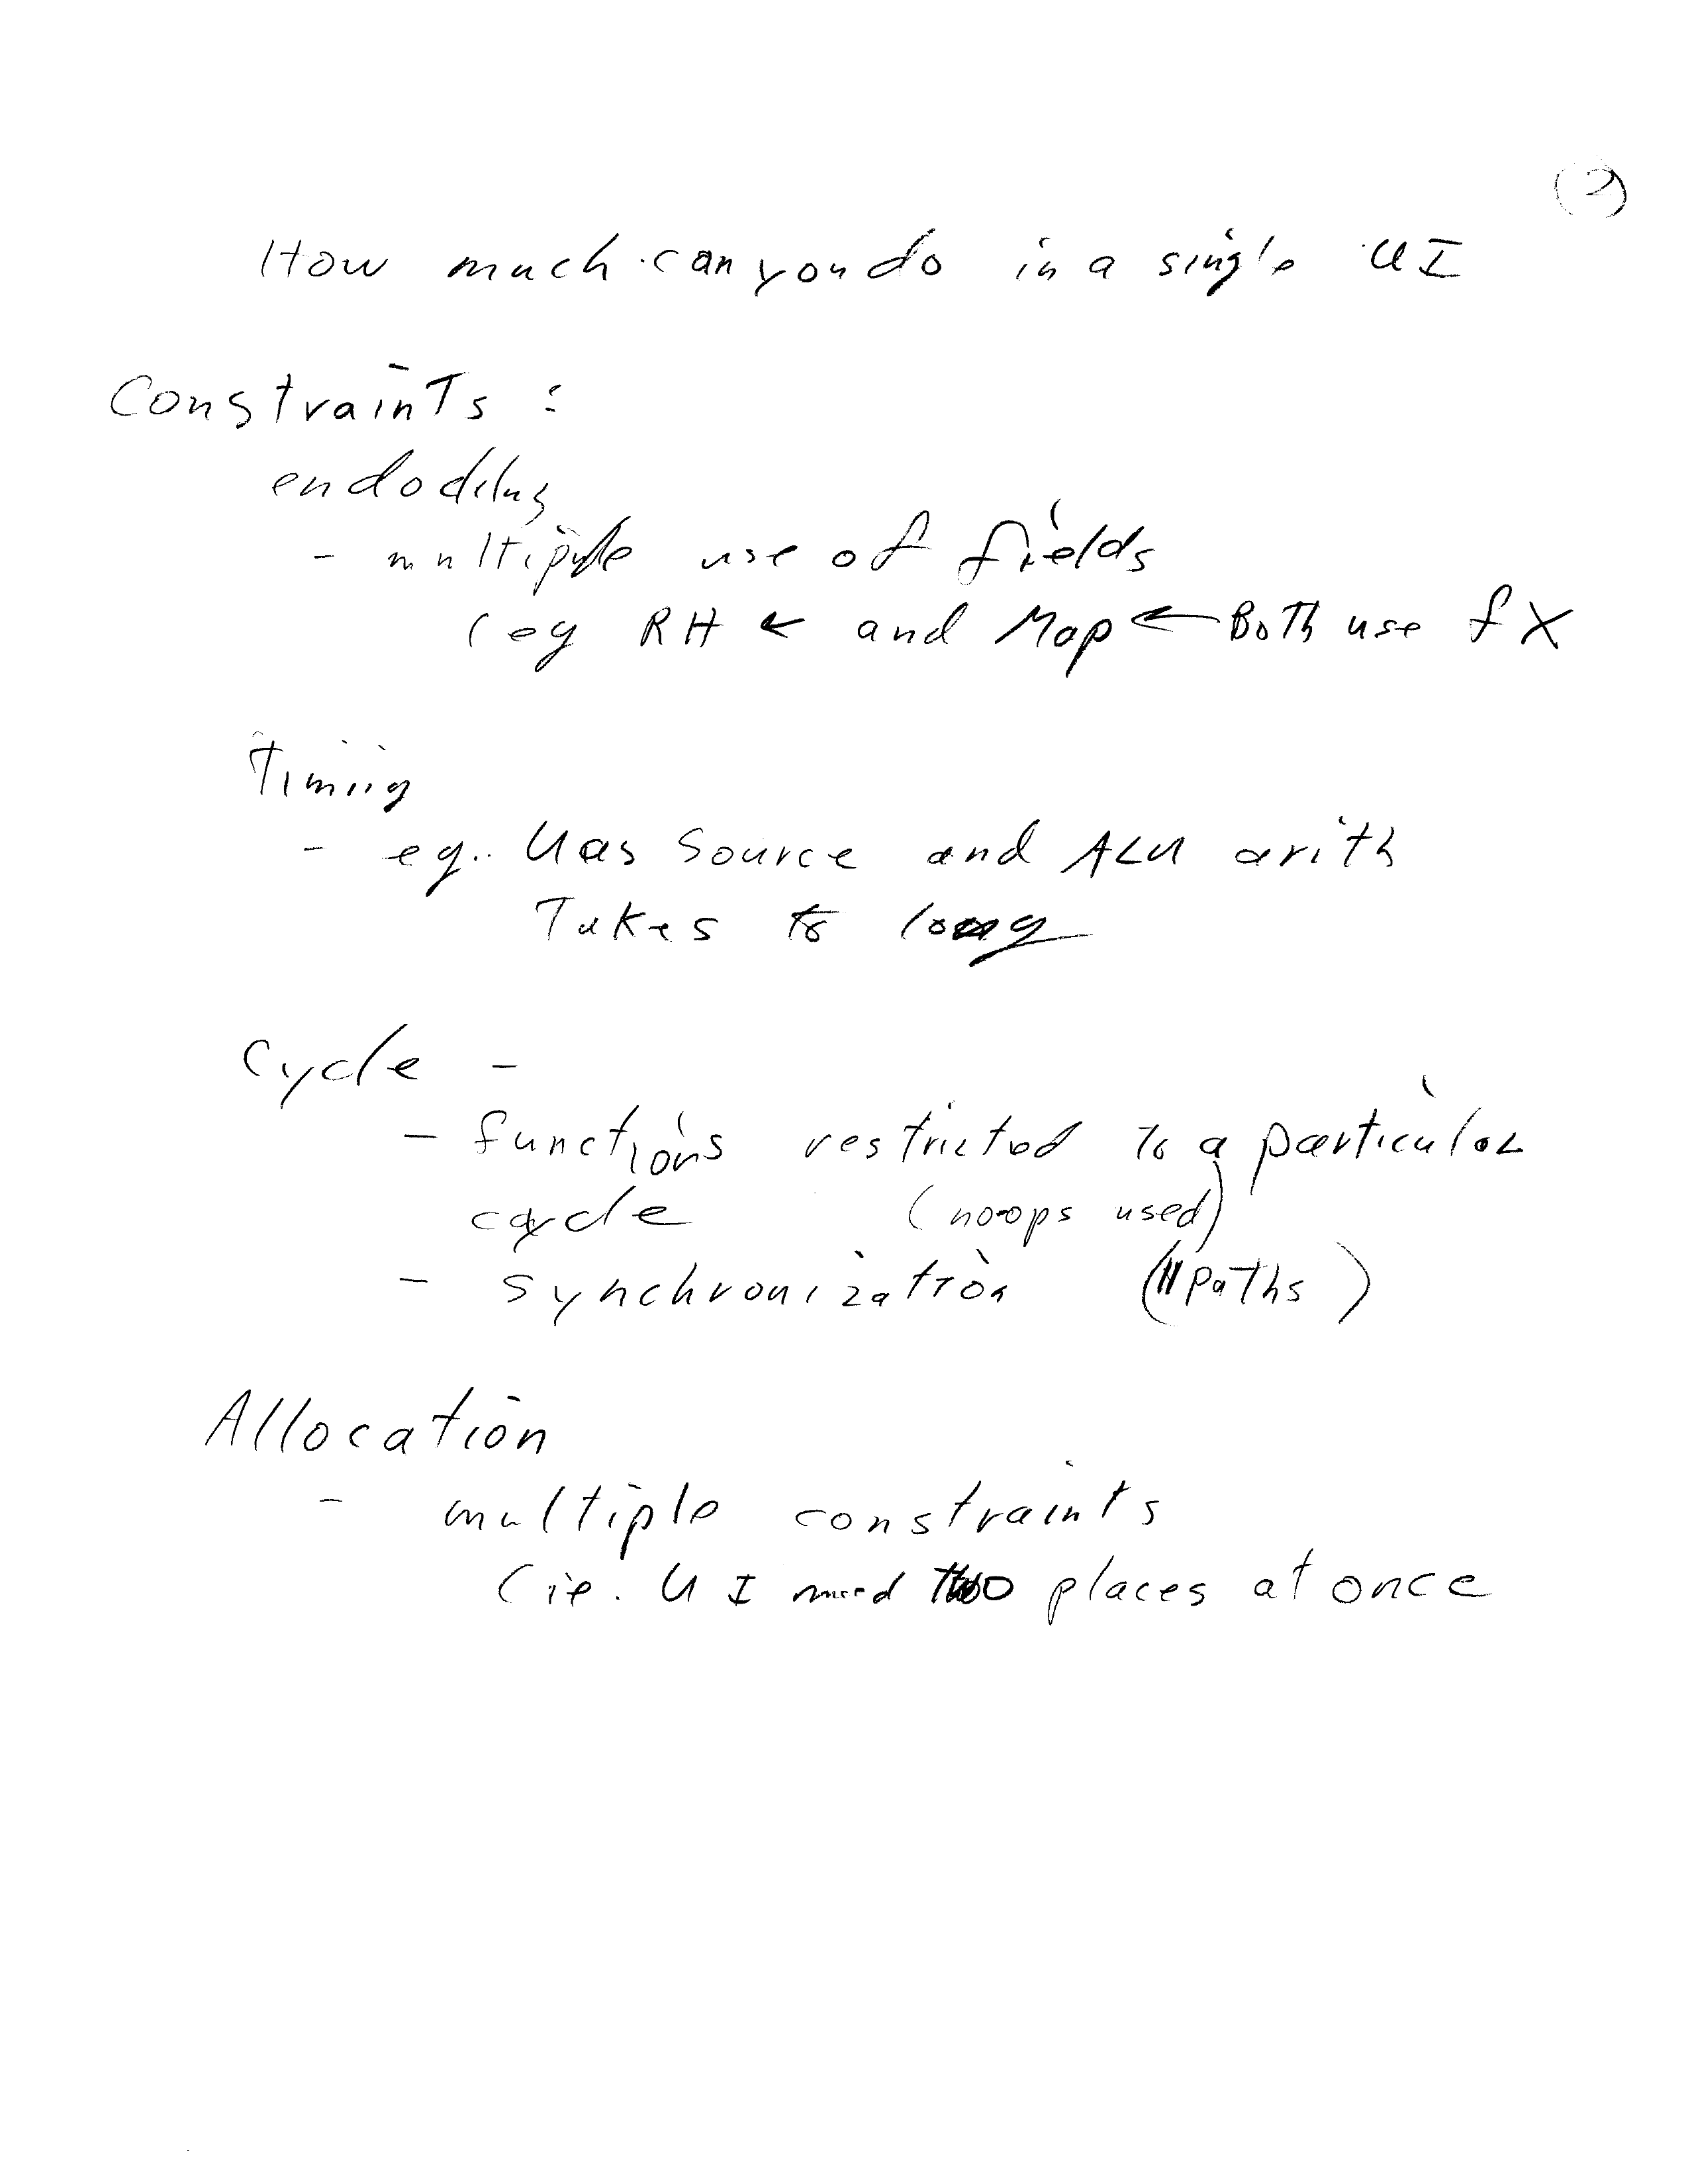 (2)
How much can you do in a single UI
Constraints :
endoding
- multiple use of fields
(eg RH ← and Map ← Both use fX
Timiig
- eg.. U as Source and ALU arith
Takes to long
Cycle -
- functions restricted to a particular
cycle (no-ops used)
- synchronization (|| paths)
Allocation
- multiple constraints
(ie. U I need two places at once